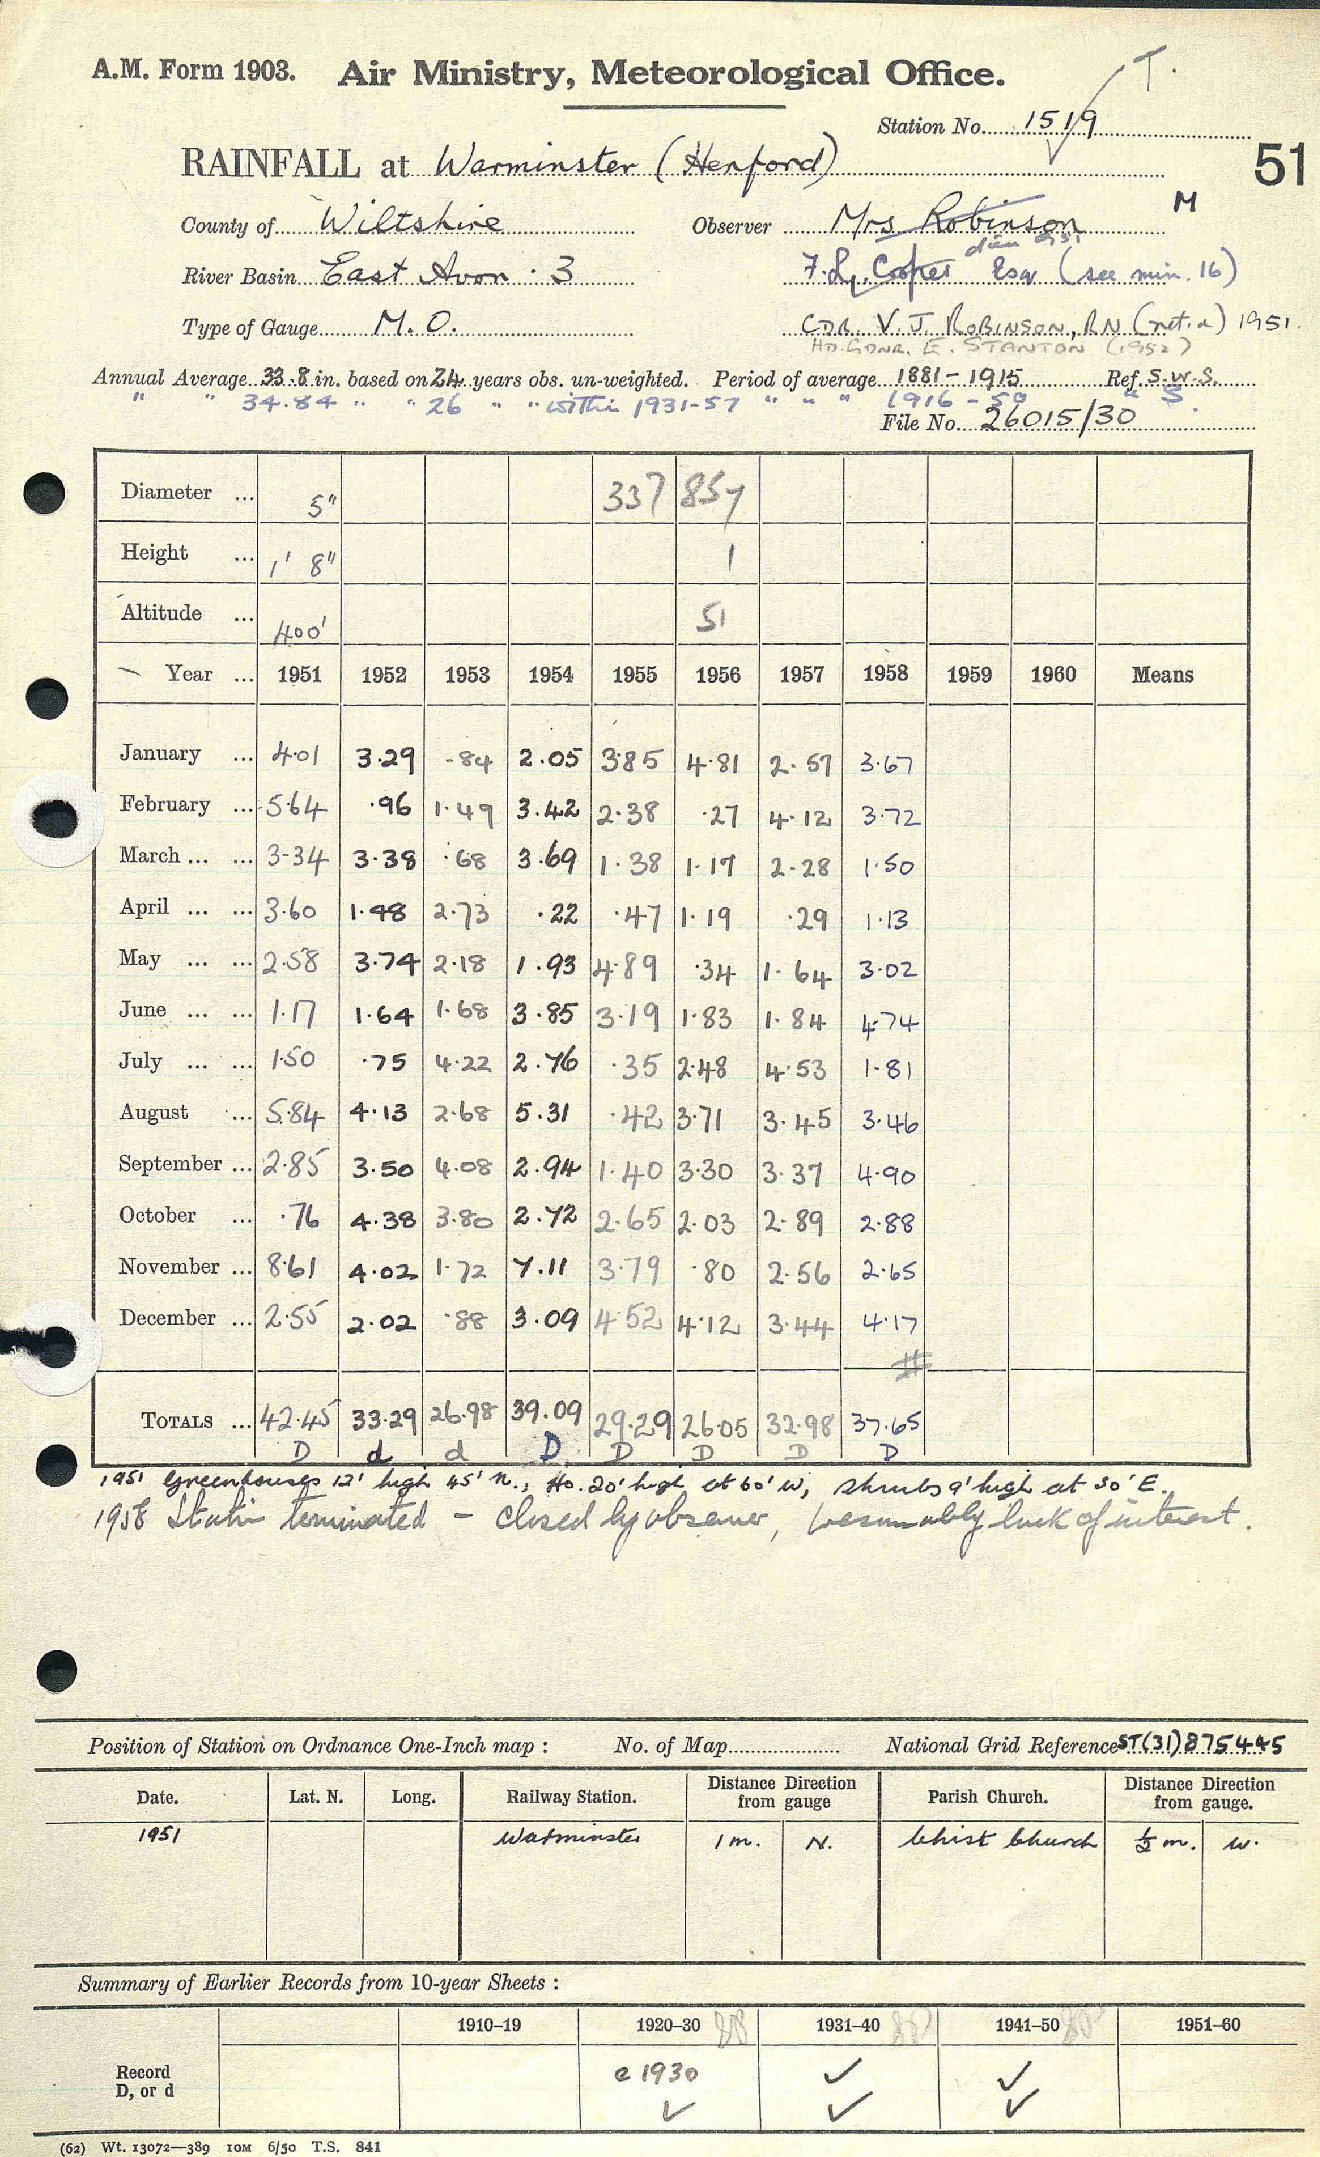 A.M. Form 1903. Air Ministry, Meteorological Office.
T.
Station No. 1519
51
RAINFALL at Warminster (Henford)
M
County of Wiltshire Observer Mrs Robinson
River Basin East Avon . 3 F.L. Cooper Esq (see min. 16)
Type of Gauge M.O. CDR. V. J. ROBINSON, RN (ret.d) 1951.
HD. GDNR. E. STANTON (1952)
Annual Average 33.8 in. based on 24 years obs. un-weighted. Period of average 1881-1915 Ref. S.W.S.
" " 34.84 " " 26 " " within 1931-57 " " " 1916-50 " S.
File No. 26015/30
Diameter ... 5" 337 857
Height ... 1' 8" 1
Altitude ... 400' 51
Year ... 1951 1952 1953 1954 1955 1956 1957 1958 1959 1960 Means
January ... 4.01 3.29 .84 2.05 3.85 4.81 2.57 3.67
February ... 5.64 .96 1.49 3.42 2.38 .27 4.12 3.72
March ... ... 3.34 3.38 .68 3.69 1.38 1.17 2.28 1.50
April ... ... 3.60 1.48 2.73 .22 .47 1.19 .29 1.13
May ... ... 2.58 3.74 2.18 1.93 4.89 .34 1.64 3.02
June ... ... 1.17 1.64 1.68 3.85 3.19 1.83 1.84 4.74
July ... ... 1.50 .75 4.22 2.76 .35 2.48 4.53 1.81
August ... 5.84 4.13 2.68 5.31 .42 3.71 3.45 3.46
September ... 2.85 3.50 4.08 2.94 1.40 3.30 3.37 4.90
October ... .76 4.38 3.80 2.72 2.65 2.03 2.89 2.88
November ... 8.61 4.02 1.72 7.11 3.79 .80 2.56 2.65
December ... 2.55 2.02 .88 3.09 4.52 4.12 3.44 4.17
#
TOTALS ... 42.45 33.29 26.98 39.09 29.29 26.05 32.98 37.65
D d d D D D D D
1951 Greenhouses 12' high 45' N., Ho. 20' high at 60' W, shrubs 9' high at 30' E.
1958 Station terminated - closed by observer, presumably lack of interest.
Position of Station on Ordnance One-Inch map : No. of Map National Grid Reference ST(31)875445
Date. Lat. N. Long. Railway Station. Distance Direction from gauge Parish Church. Distance Direction from gauge.
1951 Warminster 1 m. N. Christ Church ½ m. W.
Summary of Earlier Records from 10-year Sheets :
1910–19 1920–30 1931–40 1941–50 1951–60
Record D, or d c 1930 ✓ ✓
✓ ✓ ✓
(62) Wt. 13072—389 10M 6/50 T.S. 841